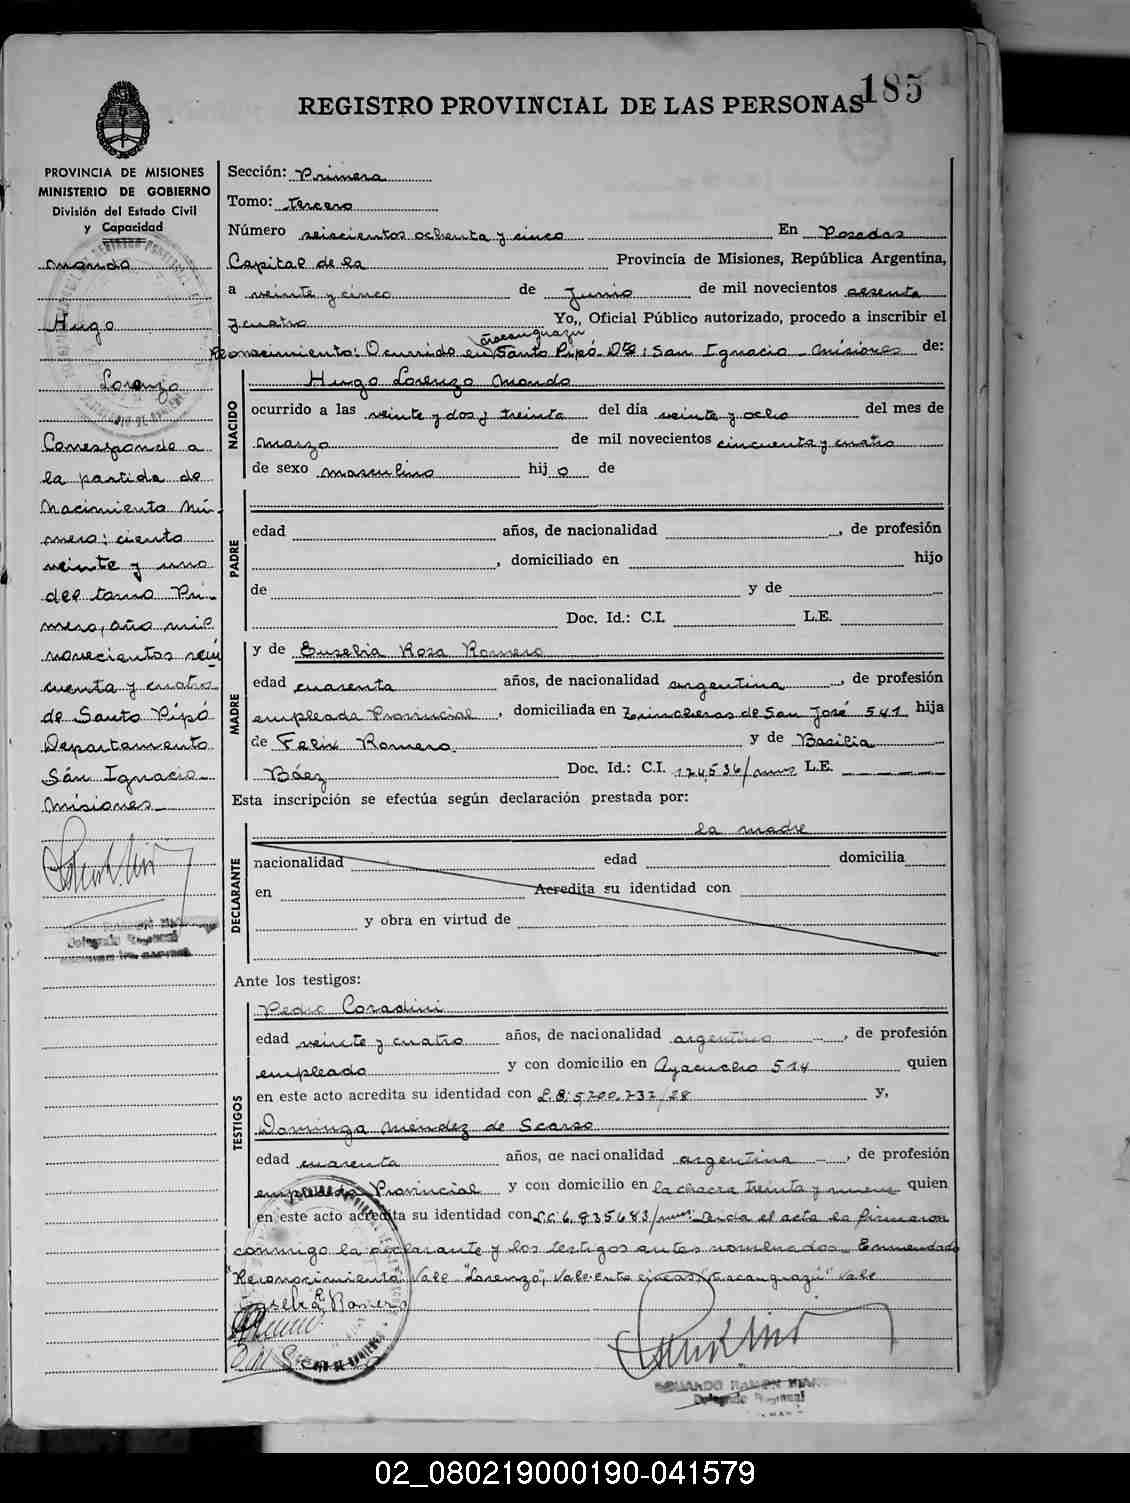 185
REGISTRO PROVINCIAL DE LAS PERSONAS
PROVINCIA DE MISIONES
MINISTERIO DE GOBIERNO
División del Estado Civil
y Capacidad
Mondo
Hugo
Lorenzo
Corresponde a
la partida de
Nacimiento Nú-
mero: ciento
veinte y uno
del tomo Pri-
mero, año mil
novecientos cin
cuenta y cuatro
de Santo Pipó
Departamento
San Ignacio
Misiones
Delegado Regional
Sección: Primera
Tomo: tercero
Número seiscientos ochenta y cinco En Posadas
Capital de la Provincia de Misiones, República Argentina,
a veinte y cinco de Junio de mil novecientos sesenta
y cuatro Yo,, Oficial Público autorizado, procedo a inscribir el
Ñacanguazú
Reconocimiento: Ocurrido en Santo Pipó. Dto: San Ignacio - Misiones de:
NACIDO
Hugo Lorenzo Mondo
ocurrido a las veinte y dos y treinta del día veinte y ocho del mes de
Marzo de mil novecientos cincuenta y cuatro
de sexo masculino hij o de
PADRE
edad años, de nacionalidad , de profesión
, domiciliado en hijo
de y de
Doc. Id.: C.I. L.E.
MADRE
y de Eusebia Rosa Romero
edad cuarenta años, de nacionalidad argentina , de profesión
empleada Provincial , domiciliada en Trincheras de San José 541 hija
de Felix Romero y de Basilia
Báez Doc. Id.: C.I. 124,536/mnes L.E.
Esta inscripción se efectúa según declaración prestada por:
la madre
DECLARANTE
nacionalidad edad domicilia
en Acredita su identidad con
y obra en virtud de
Ante los testigos:
TESTIGOS
Pedro Coradini
edad veinte y cuatro años, de nacionalidad argentino , de profesión
empleado y con domicilio en Ayacucho 514 quien
en este acto acredita su identidad con y,
Dominga Mendez de Scarso
edad cuarenta años, de nacionalidad argentina , de profesión
empleada Provincial y con domicilio en la chacra treinta y nueve quien
en este acto acredita su identidad con L.C. 6.835683/mnes Leida el acta la firmaron
conmigo la declarante y los testigos antes nombrados. Enmendado
"Reconocimiento" Vale "Lorenzo", Vale. Entre lineas "Ñacanguazú" Vale
Eusebia R Romero
D M Scarso
EDUARDO RAMON
Delegado Regional
02_080219000190-041579